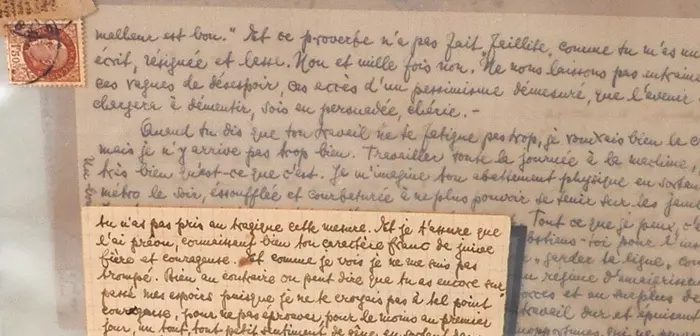 malheur est bon." Et ce proverbe n'a pas fait faillite, comme tu m'as
écrit, résignée et lasse. Non et mille fois non. Ne nous laissons pas
ces vagues de désespoir, ces accès d'un pessimisme démesuré, que l'avenir
chargera à démentir, sois en persuadée, chérie. -
Quand tu dis que ton travail ne te fatigue pas trop, je voudrais bien le
mais je n'y arrive pas trop bien. Travailler toute la journée à la machine,
très bien qu'est-ce que c'est. Je m'imagine ton abattement physique en
métro le soir, essoufflée et courbaturée à ne plus pouvoir se tenir sur les
Tout ce que je peux, c'
-toi pour l'
garder ta ligne,
régime d'
et un surplus
travail dur et
tu n'as pas pris au tragique cette mesure. Et je t'assure que
l'ai prévu, connaissant bien ton caractère franc de juive
fière et courageuse. Et comme je vois je ne me suis pas
trompé. Bien au contraire on peut dire que tu as encore sur
passé mes espoirs puisque je ne te croyais pas à tel point
courageuse, pour ne pas éprouver, pour le moins au premier
jour, un tout, tout petit sentiment de gêne en sortant